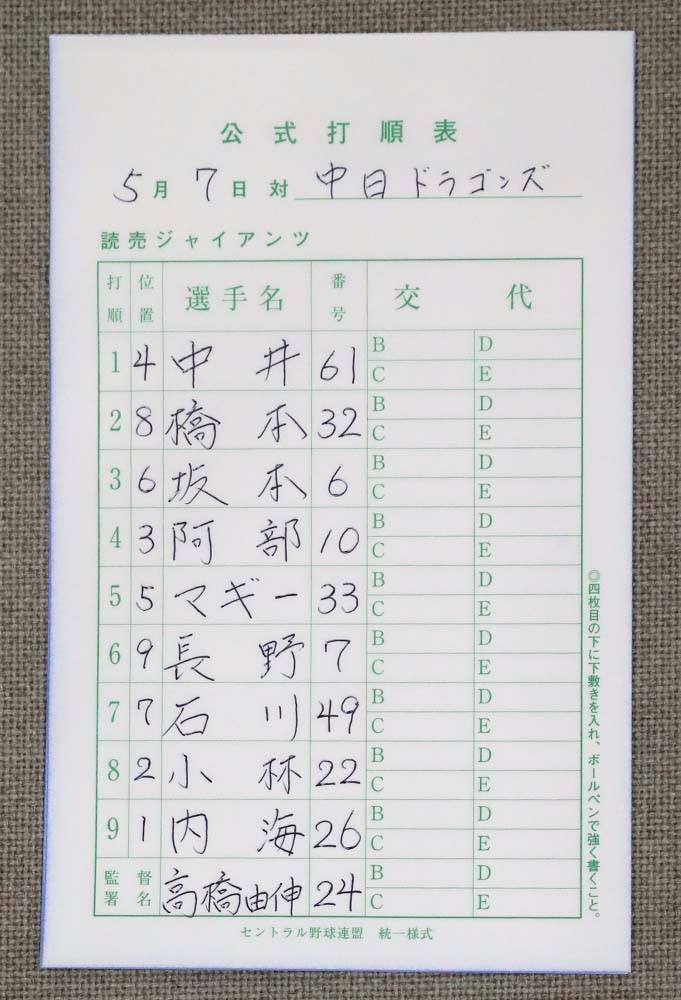 公式打順表
5月7日対 中日ドラゴンズ
読売ジャイアンツ
打順 位置 選手名 番号 交代
1 4 中井 61 B D
C E
2 8 橋本 32 B D
C E
3 6 坂本 6 B D
C E
4 3 阿部 10 B D
C E
5 5 マギー 33 B D
C E
6 9 長野 7 B D
C E
7 7 石川 49 B D
C E
8 2 小林 22 B D
C E
9 1 内海 26 B D
C E
監督署名 高橋由伸 24 B D
C E
セントラル野球連盟 統一様式
◎四枚目の下に下敷きを入れ、ボールペンで強く書くこと。